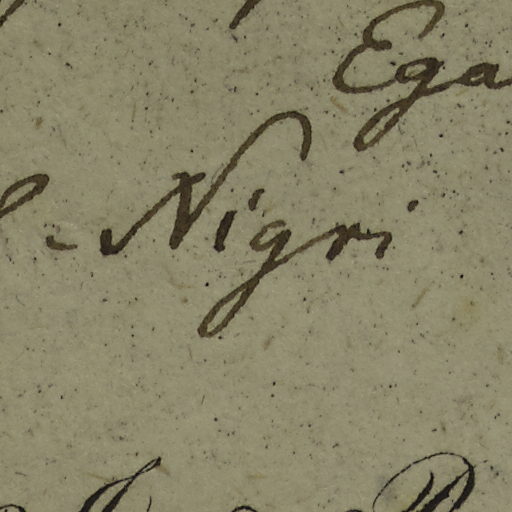 Ega
Nigri